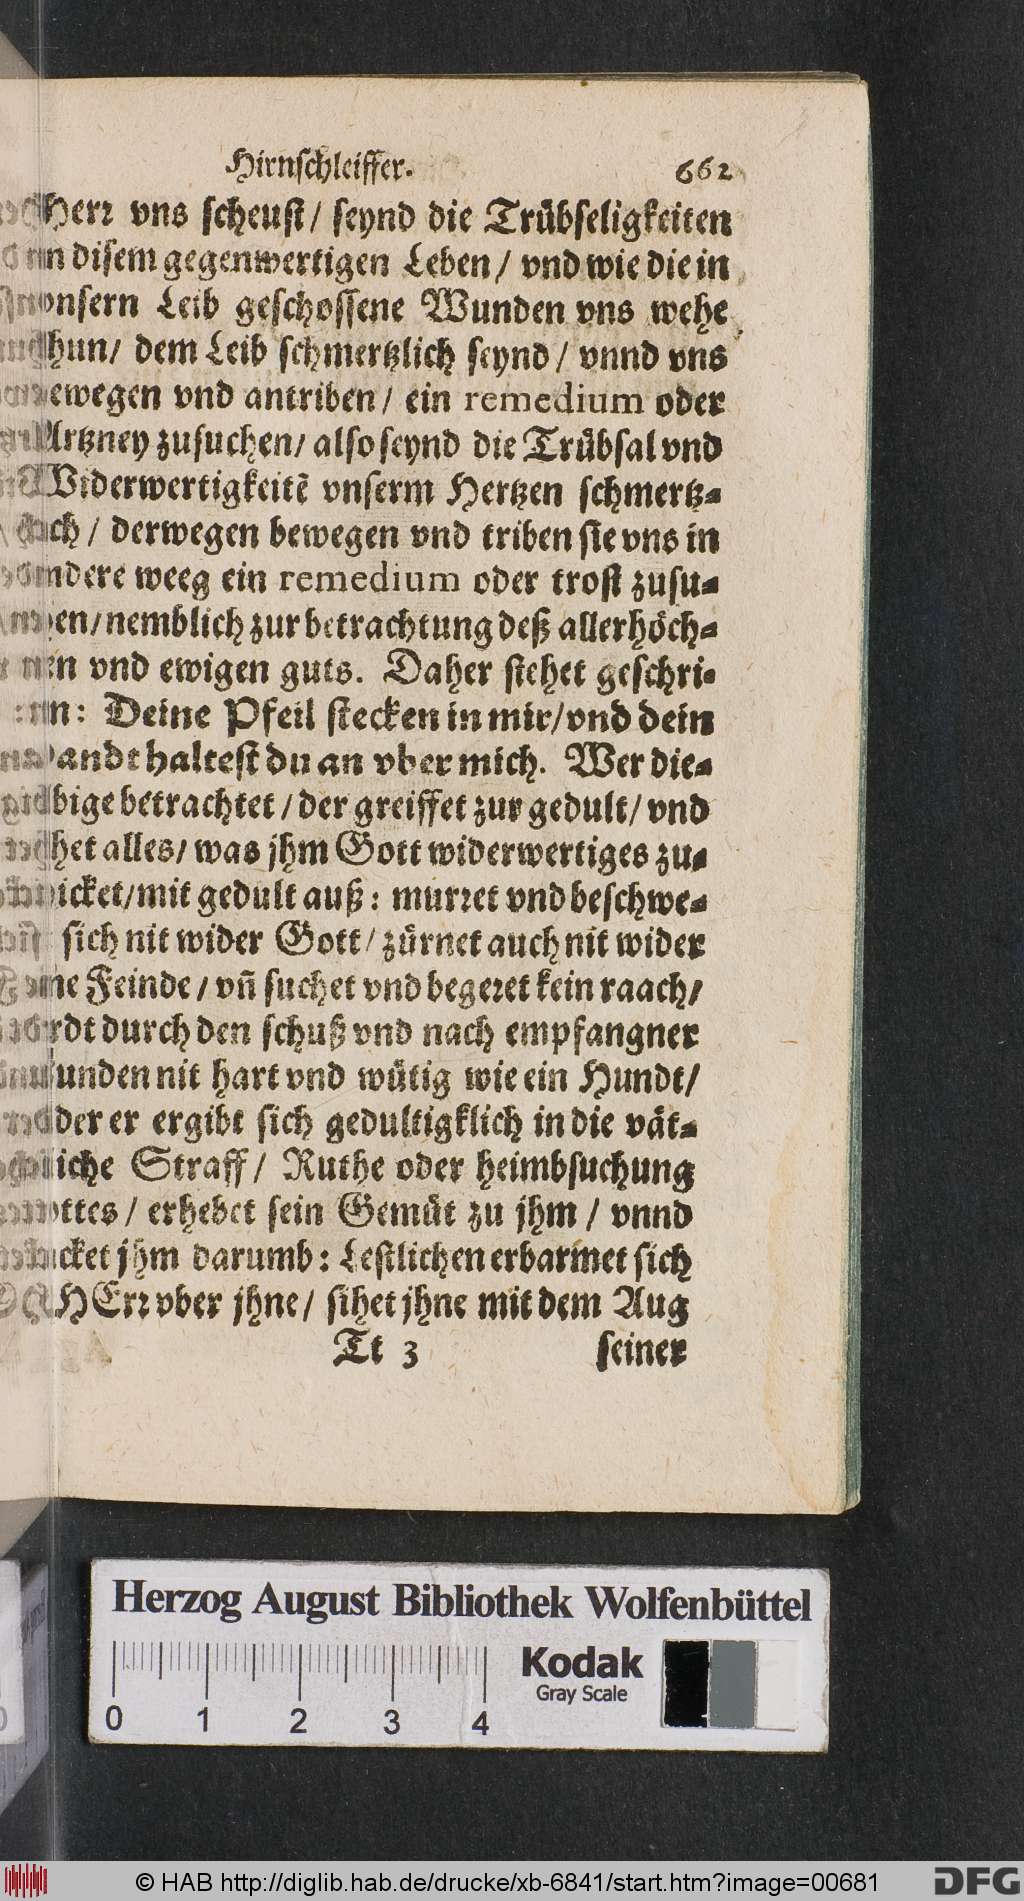 Hirnschleiffer. 662
Herr vns scheust / seynd die Trübseligkeiten
in disem gegenwertigen Leben / vnd wie die in
vnsern Leib geschossene Wunden vns wehe
thun / dem Leib schmertzlich seynd / vnnd vns
bewegen vnd antriben / ein remedium oder
Artzney zusuchen / also seynd die Trübsal vnd
Widerwertigkeitē vnserm Hertzen schmertz-
lich / derwegen bewegen vnd triben sie vns in
andere weeg ein remedium oder trost zusu-
chen / nemblich zur betrachtung deß allerhöch-
sten vnd ewigen guts. Daher stehet geschri-
ben: Deine Pfeil stecken in mir / vnd dein
Handt haltest du an vber mich. Wer die-
bige betrachtet / der greiffet zur gedult / vnd
stehet alles / was jhm Gott widerwertiges zu-
schicket / mit gedult auß: murret vnd beschwe-
sich nit wider Gott / zürnet auch nit wider
seine Feinde / vñ suchet vnd begeret kein raach /
wirdt durch den schuß vnd nach empfangner
Wunden nit hart vnd wütig wie ein Hundt /
sonder er ergibt sich gedultigklich in die vät-
terliche Straff / Ruthe oder heimbsuchung
Gottes / erhebet sein Gemüt zu jhm / vnnd
dancket jhm darumb: Lestlichen erbarmet sich
HErr vber jhne / sihet jhne mit dem Aug
Tt 3 seiner
Herzog August Bibliothek Wolfenbüttel
Kodak
Gray Scale
0 1 2 3 4
© HAB http://diglib.hab.de/drucke/xb-6841/start.htm?image=00681
DFG